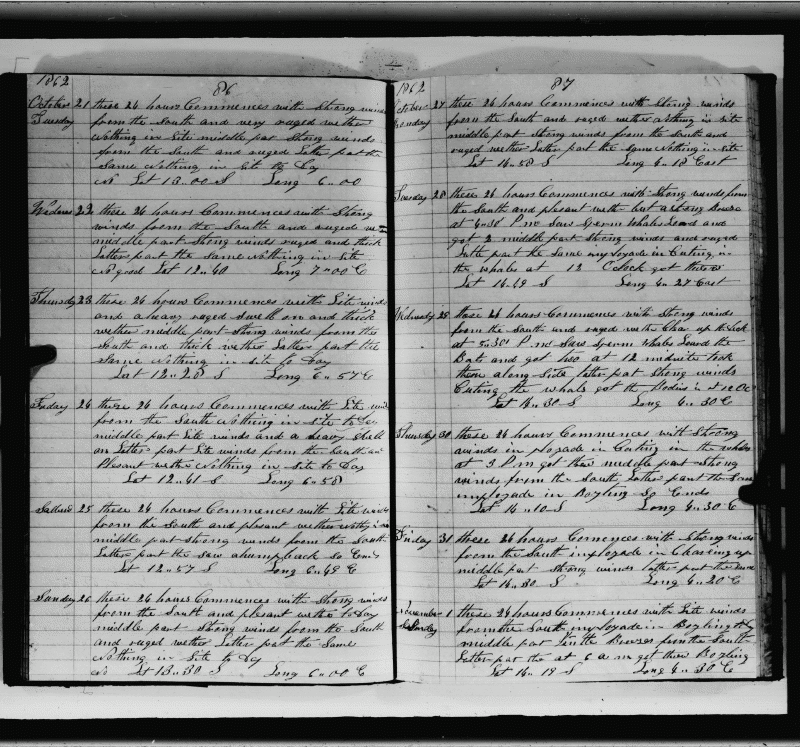 1862
86
October 21 these 24 hours Commences with Strong winds
Tuesday from the South and very ruged wether
Nothing in Site middle part Strong winds
from the South and ruged Latter part the
Same Nothing in Site to Day
No Lat 13.00 S Long 6.00
Wednes 22 these 24 hours Commences with Strong
winds from the South and ruged
middle part Strong winds ruged and thick
Latter part the same Nothing in Site
No good Lat 12.40 Long 7.00 E
Thursday 23 these 24 hours Commences with Lite winds
and a heavy ruged Swell on and thick
wether middle part Strong winds from the
South and thick wether Latter part the
Same Nothing in Site to Day
Lat 12.20 S Long 6.57 E
Friday 24 these 24 hours Commences with Lite
from the South Nothing in site to Day
middle part Lite winds and a heavy
on Latter part Lite winds from the South and
Plesant wether Nothing in Site to Day
Lat 12.41 S Long 6.58
25 these 24 hours Commences with Lite winds
from the South and plesant wether
middle part Strong winds from the South
Latter part the saw ahumpback So Ends
Lat 12.57 S Long 6.49 E
Sunday 26 these 24 hours Commences with Strong winds
from the South and plesant wether to Day
middle part Strong winds from the South
and ruged wether Latter part the Same
Nothing in Site to Dy
No Lat 13.30 S Long 6.00 E
1862
87
October 27 these 24 hours Commences with Strong winds
Monday from the South and ruged wether Nothing in site
middle part Strong winds from the South and
ruged wether Latter part the same Nothing in Site
Lat 14.58 S Long 4.18 East
Tuesday 28 these 24 hours Commences with Strong winds from
the South and plesant weth but astrong
at 4.30 P m Saw Sperm Whales Loard and
got 2 middle part Strong winds and ruged
Latter part the Same imployade in Cuting in
the whales at 12 O'clock got threw
Lat 14.19 S Long 4.27 East
Wednesday 29 these 24 hours Commences with Strong winds
from the South and ruged weth up the Deck
at 5.30 P m Saw Sperm Whales Loward the
Bots and got two at 12 midnite took
them along Side latter part Strong winds
Cuting the whale got the Bodies in
Lat 14.30 S Long 4.30 E
Thursday 30 these 24 hours Commences with Strong
winds imployade in Cuting in the whales
at 3 P m got threw middle part Strong
winds from the South Latter part the Same
imployade in Boyling So Ends
Lat 14.10 S Long 4.30 E
Friday 31 these 24 hours Comences with Strong winds
from the South imployade in Clearing up
middle part Strong winds latter part the Same
Lat 14.30 S Long 4.20 E
November 1 these 24 hours Commences with Lite winds
from the South imployade in Boyling
middle part Jentle Breezes from the South
Latter part the at 6 a m got threw Boyling
Lat 14.19 S Long 4.30 E